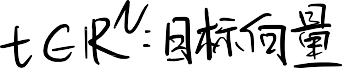 t∈ℝᴺ:目标向量